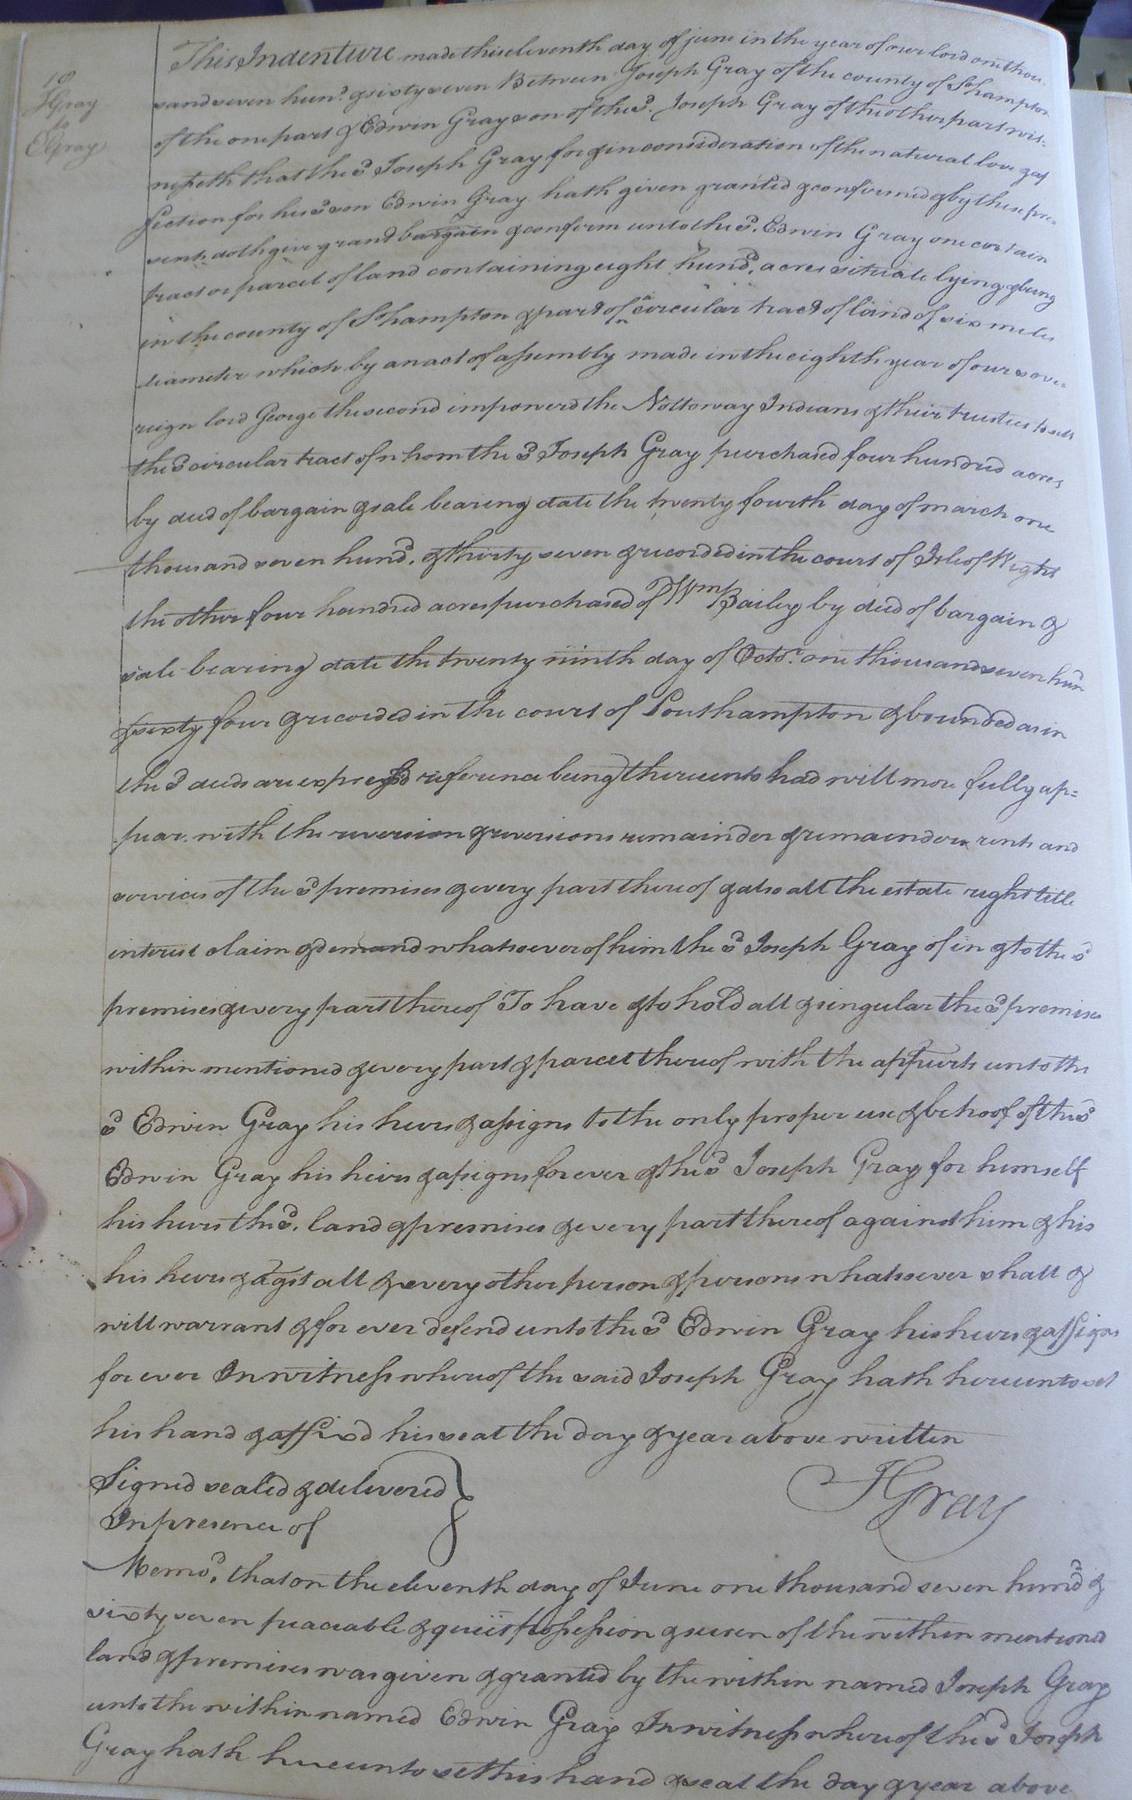 10
JGray
to
EGray
This Indenture made this eleventh day of june in the year of our lord one thou
sand seven hund. & sixty seven Between Joseph Gray of the county of S°hampton
of the one part & Edwin Gray son of the sd. Joseph Gray of the other part wit-
nesseth that the sd Joseph Gray for & in consideration of the natural love & af
fection for his sd son Edwin Gray hath given granted & confirmed & by these pre-
sents doth give grant bargain & confirm unto the sd. Edwin Gray one certain
tract or parcel of land containing eight hund. acres situate lying & being
in the county of S°hampton & part of a circular tract of land of six miles
diameter which by an act of assembly made in the eighth year of our sove-
reign lord George the second impowerd the Nottoway Indians & their trustees to sell
the sd circular tract of whom the sd Joseph Gray purchased four hundred acres
by deed of bargain & sale bearing date the twenty fourth day of march one
thousand seven hund. & thirty seven & recorded in the court of Isle of Wight
the other four hundred acres purchased of Wm Bailey by deed of bargain &
sale bearing date the twenty ninth day of Octo.r one thousand seven hund
& sixty four & recorded in the court of Southampton & bounded as in
the sd deeds are expressd reference being thereunto had will more fully ap=
pear with the reversion & reversions remainder & remainders rents and
services of the sd premises & every part thereof & also all the estate right title
interest claim & demand whatsoever of him the sd Joseph Gray of in & to the sd
premises & every part thereof To have & to hold all & singular the sd premises
within mentioned & every part & parcel thereof with the appurts unto the
sd Edwin Gray his heirs & assigns to the only proper use & behoof of the sd
Edwin Gray his heirs & assigns for ever & the sd Joseph Gray for himself
his heirs the sd. land & premises & every part thereof against him & his
his heirs & agst all & every other person & persons whatsoever shall &
will warrant & for ever defend unto the sd Edwin Gray his heirs & assigns
for ever In witness whereof the said Joseph Gray hath hereunto set
his hand & affixd his seal the day & year above written
Signed sealed & delivered
In presence of
JGray
Memod. that on the eleventh day of June one thousand seven hund &
sixty seven peaceable & quiet possession & seisen of the within mentioned
land & premises was given & granted by the within named Joseph Gray
unto the within named Edwin Gray In witness whereof the sd Joseph
Gray hath hereunto set his hand & seal the day & year above